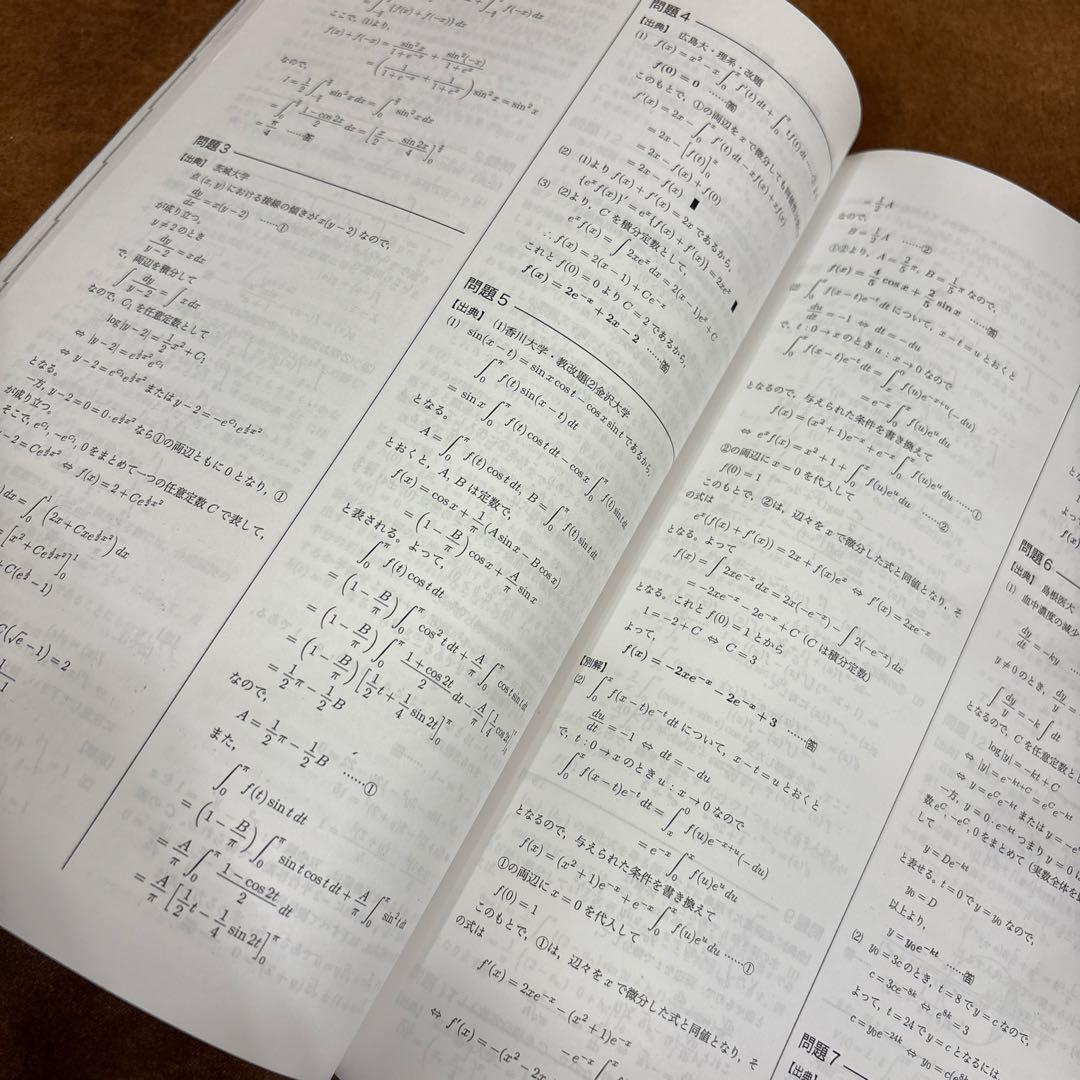 f(x)+f(-x)=\frac{\sin^2 x}{1+e^{-x}}+\frac{\sin^2(-x)}{1+e^x}
=\left(\frac{1}{1+e^{-x}}+\frac{1}{1+e^x}\right)\sin^2 x=\sin^2 x
なので,
=\frac{π}{4} ……答
問題3
【出典】 茨城大学
点(x, y)における接線の傾きが x(y-2) なので,
\frac{dy}{dx}=x(y-2) ……①
が成り立つ。
y≠2のとき
\frac{dy}{y-2}=xdx
で, 両辺を積分して
∫\frac{dy}{y-2}=∫xdx
なので, C₁を任意定数として
log|y-2|=\frac{1}{2}x²+C₁
⇔ |y-2|=e^{\frac{1}{2}x²}e^{C₁}
⇔ y-2=e^{C₁}e^{\frac{1}{2}x²} または y-2=-e^{C₁}e^{\frac{1}{2}x²}
となる。
一方, y-2=0=0·e^{\frac{1}{2}x²} なら①の両辺ともに0となり, ①
が成り立つ。
そこで, e^{C₁}, -e^{C₁}, 0をまとめて一つの任意定数Cで表して,
-2=Ce^{\frac{1}{2}x²}
⇔ f(x)=2+Ce^{\frac{1}{2}x²}
dx=∫_0^1(2x+Cxe^{\frac{1}{2}x²})dx
=[x²+Ce^{\frac{1}{2}x²}]_0^1
C(e^{\frac{1}{2}}-1)
C(√e-1)=2
問題4
【出典】 広島大・理系・改題
(1) f(x)=x²-x∫_0^x f'(t)dt+∫_0^x tf'(t)dt
f(0)=0 ……答
このもとで, ①の両辺をxで微分しても
f'(x)=2x-∫_0^x f'(t)dt-xf'(x)+xf'(x)
=2x-[f(t)]_0^x
=2x-f(x)+f(0)
=2x-f(x)
(2) (1)より f(x)+f'(x)=2x であるから,
{e^x f(x)}'=e^x{f(x)+f'(x)}=2xe^x
(3) (2)より, Cを積分定数として,
e^x f(x)=∫2xe^x dx=2(x-1)e^x+C
∴ f(x)=2(x-1)+Ce^{-x}
これと f(0)=0 より C=2 であるから,
f(x)=2e^{-x}+2x-2 ……答
問題5
【出典】 (1)香川大学・教改題(2)金沢大学
(1) sin(x-t)=sinxcost-cosxsintであるから,
∫_0^π f(t)sin(x-t)dt
=sinx∫_0^π f(t)costdt-cosx∫_0^π f(t)sintdt
となる。
A=∫_0^π f(t)costdt, B=∫_0^π f(t)sintdt
とおくと, A, Bは定数で,
f(x)=cosx+\frac{1}{π}(Asinx-Bcosx)
=(1-\frac{B}{π})cosx+\frac{A}{π}sinx
と表される。よって,
∫_0^π f(t)costdt
=(1-\frac{B}{π})∫_0^π cos²tdt+\frac{A}{π}∫_0^π costsintdt
=(1-\frac{B}{π})∫_0^π\frac{1+cos2t}{2}dt-\frac{A}{π}[\frac{1}{4}cos2t]
=(1-\frac{B}{π})[\frac{1}{2}t+\frac{1}{4}sin2t]_0^π
=\frac{1}{2}π-\frac{1}{2}B
なので,
A=\frac{1}{2}π-\frac{1}{2}B ……①
また,
∫_0^π f(t)sintdt
=(1-\frac{B}{π})∫_0^π sintcostdt+\frac{A}{π}∫_0^π sin²td
=\frac{A}{π}∫_0^π\frac{1-cos2t}{2}dt
=\frac{A}{π}[\frac{1}{2}t-\frac{1}{4}sin2t]_0^π
=\frac{1}{2}A
なので,
B=\frac{1}{2}A ……②
①②より, A=\frac{2}{5}π, B=\frac{1}{5}πなので,
f(x)=\frac{4}{5}cosx+\frac{2}{5}sinx ……答
(2) ∫_0^x f(x-t)e^{-t}dtについて, x-t=uとおくと
\frac{du}{dt}=-1 ⇔ dt=-du
で, t:0→xのときu:x→0なので
∫_0^x f(x-t)e^{-t}dt=∫_x^0 f(u)e^{-x+u}(-du)
=e^{-x}∫_0^x f(u)e^u du
となるので, 与えられた条件を書き換えて
f(x)=(x²+1)e^{-x}+e^{-x}∫_0^x f(u)e^u du ……①
⇔ e^x f(x)=x²+1+∫_0^x f(u)e^u du ……②
②の両辺に x=0 を代入して
f(0)=1
このもとで, ②は, 辺々をxで微分した式と同値となり, そ
の式は
e^x(f(x)+f'(x))=2x+f(x)e^x ⇔ f'(x)=2xe^{-x}
となる。よって
f(x)=∫2xe^{-x}dx=2x(-e^{-x})-∫2(-e^{-x})dx
=-2xe^{-x}-2e^{-x}+C (Cは積分定数)
となる。これと f(0)=1 とから
1=-2+C ⇔ C=3
よって,
f(x)=-2xe^{-x}-2e^{-x}+3 ……答
【別解】
(2) ∫_0^x f(x-t)e^{-t}dtについて, x-t=uとおくと
\frac{du}{dt}=-1 ⇔ dt=-du
で, t:0→xのときu:x→0なので
∫_0^x f(x-t)e^{-t}dt=∫_x^0 f(u)e^{-x+u}(-du)
=e^{-x}∫_0^x f(u)e^u du
となるので, 与えられた条件を書き換えて
f(x)=(x²+1)e^{-x}+e^{-x}∫_0^x f(u)e^u du ……①
①の両辺に x=0 を代入して
f(0)=1
このもとで, ①は, 辺々をxで微分した式と同値となり, そ
の式は
f'(x)=2xe^{-x}-(x²+1)e^{-x}
-e^{-x}∫
⇔ f'(x)=-(x²-2x
となる
よって
f(x)
問題6
【出典】 島根医大
(1) 血中濃度の減少
\frac{dy}{dt}=-ky
y≠0のとき, \frac{dy}{y}=
∫\frac{dy}{y}=-k∫dt
となるので, Cを任意定数と
log|y|=-kt+C
⇔ |y|=e^{-kt+C}=e^C e^{-kt}
⇔ y=e^C e^{-kt} または y=-e^C
一方, y=0·e^{-kt} つまり y=0 は
数e^C, -e^C, 0をまとめて (実数全体を
して
y=De^{-kt}
と表せる。t=0でy=y₀なので,
y₀=D
以上より,
y=y₀e^{-kt} ……答
(2) y₀=3cのとき, t=8でy=cなので,
c=3ce^{-8k} ⇔ e^{8k}=3
よって, t=24でy=cとなるには,
c=y₀e^{-24k} ⇔ y₀=c(e^{8k}
問題7
【出典】